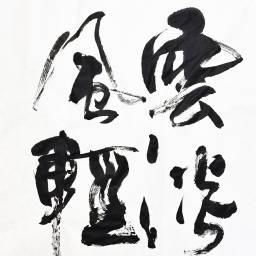 雲淡
風輕